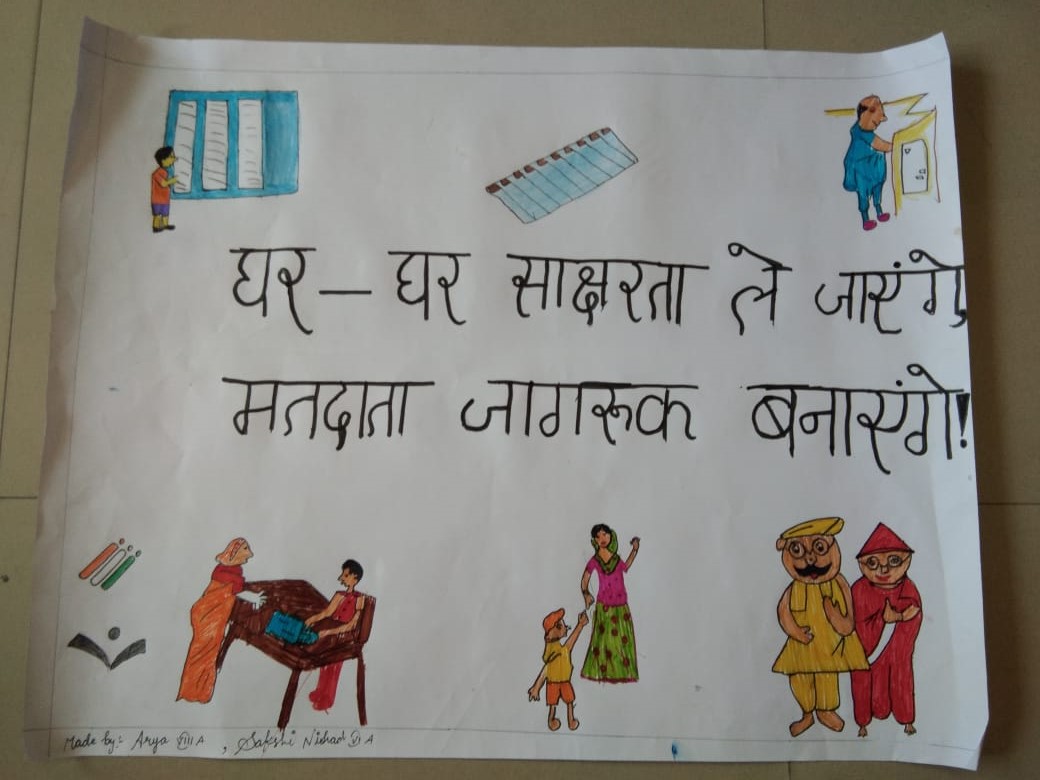 घर – घर साक्षरता ले जाएंगे
मतदाता जागरूक बनाएंगे!
Made by:- Arya VIII A , Sakshi Nishad VI A